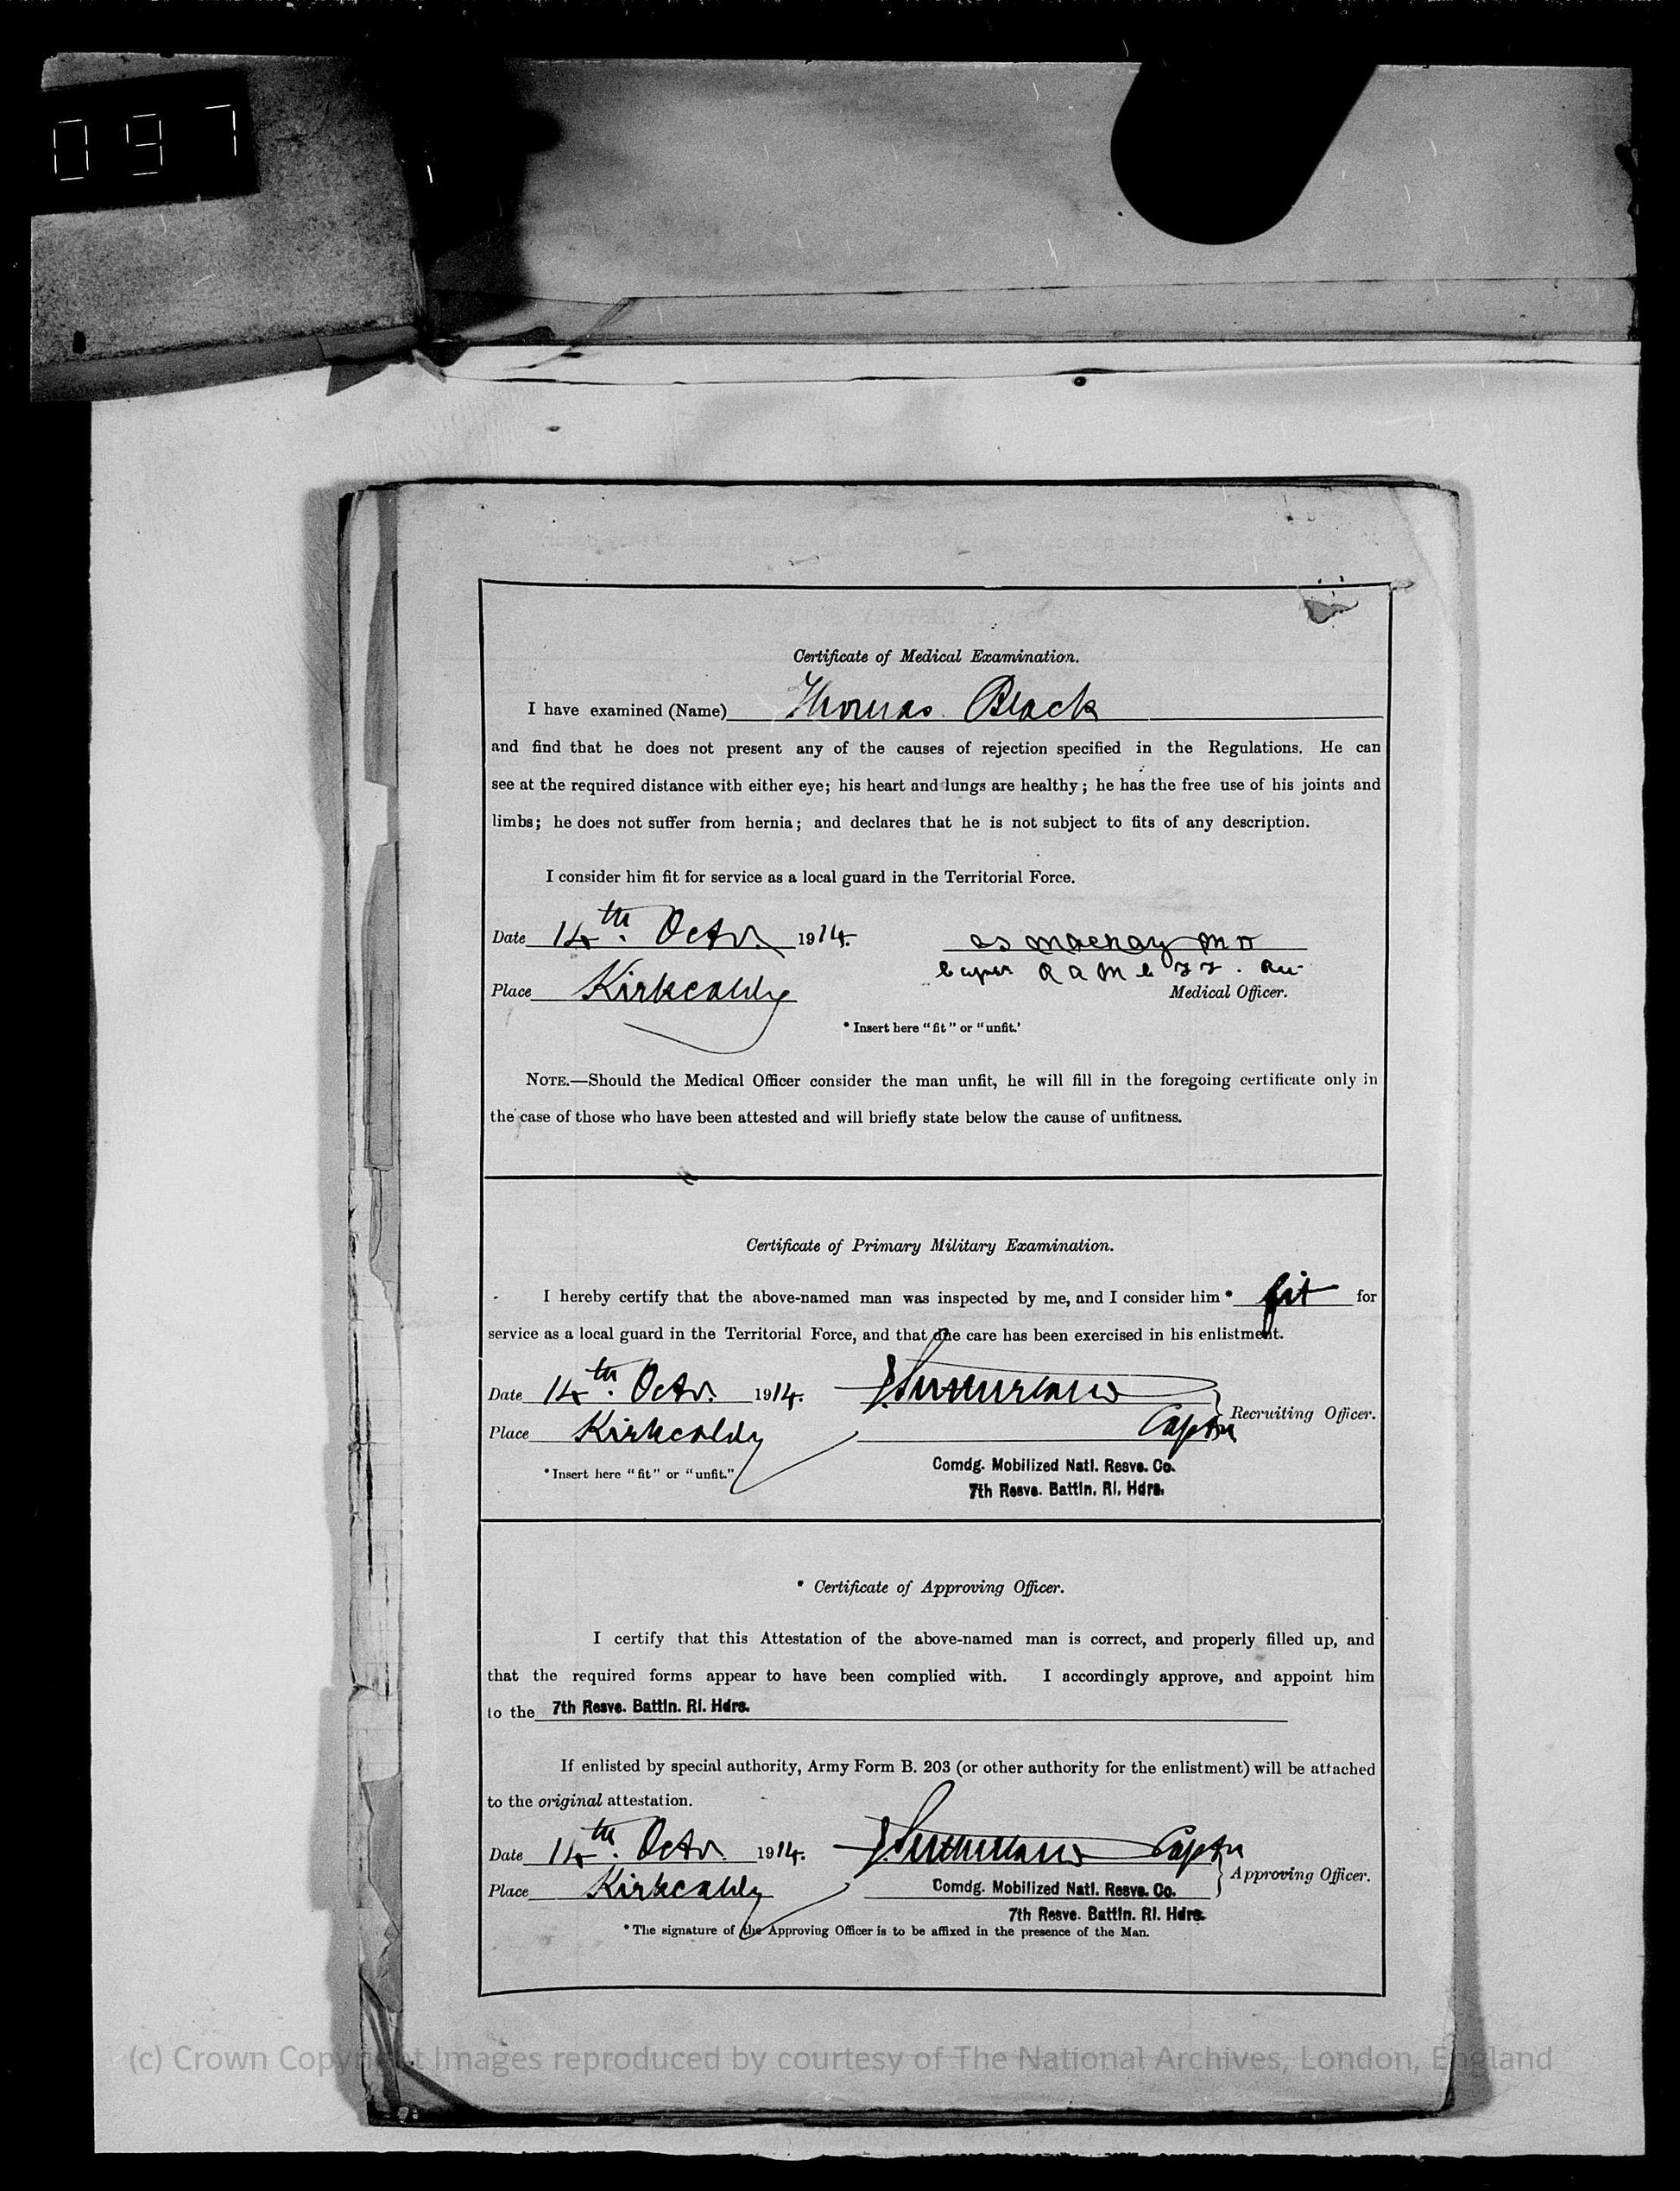 097
Certificate of Medical Examination.
I have examined (Name) Thomas Black
and find that he does not present any of the causes of rejection specified in the Regulations. He can
see at the required distance with either eye; his heart and lungs are healthy; he has the free use of his joints and
limbs; he does not suffer from hernia; and declares that he is not subject to fits of any description.
I consider him fit for service as a local guard in the Territorial Force.
Date 14th. Octr. 1914.
Mackay MD
R A M C
Place Kirkcaldy
Medical Officer.
* Insert here "fit" or "unfit.'
NOTE.—Should the Medical Officer consider the man unfit, he will fill in the foregoing certificate only in
the case of those who have been attested and will briefly state below the cause of unfitness.
Certificate of Primary Military Examination.
I hereby certify that the above-named man was inspected by me, and I consider him * fit for
service as a local guard in the Territorial Force, and that due care has been exercised in his enlistment.
Date 14th. Octr. 1914. J Sutherland
Captn Recruiting Officer.
Place Kirkcaldy
Comdg. Mobilized Natl. Resve. Co.
* Insert here "fit" or "unfit."
7th Resve. Battln. Rl. Hdrs.
* Certificate of Approving Officer.
I certify that this Attestation of the above-named man is correct, and properly filled up, and
that the required forms appear to have been complied with. I accordingly approve, and appoint him
to the 7th Resve. Battln. Rl. Hdrs.
If enlisted by special authority, Army Form B. 203 (or other authority for the enlistment) will be attached
to the original attestation.
Date 14th. Octr. 1914. J Sutherland Captn
Approving Officer.
Place Kirkcaldy Comdg. Mobilized Natl. Resve. Co.
7th Resve. Battln. Rl. Hdrs.
* The signature of the Approving Officer is to be affixed in the presence of the Man.
(c) Crown Copyright Images reproduced by courtesy of The National Archives, London, England